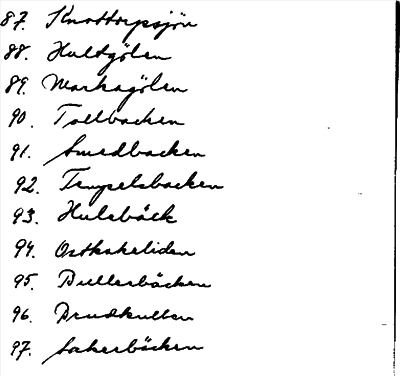 87. Knottorpsjön
88. Hultgölen
89. Markagölen
90. Tallbacken
91. Smedbacken
92. Tempelsbacken
93. Hulsbäck
94. Ostkakeliden
95. Bullerbäcken
96. Brudkullen
97. Sockerbäcken